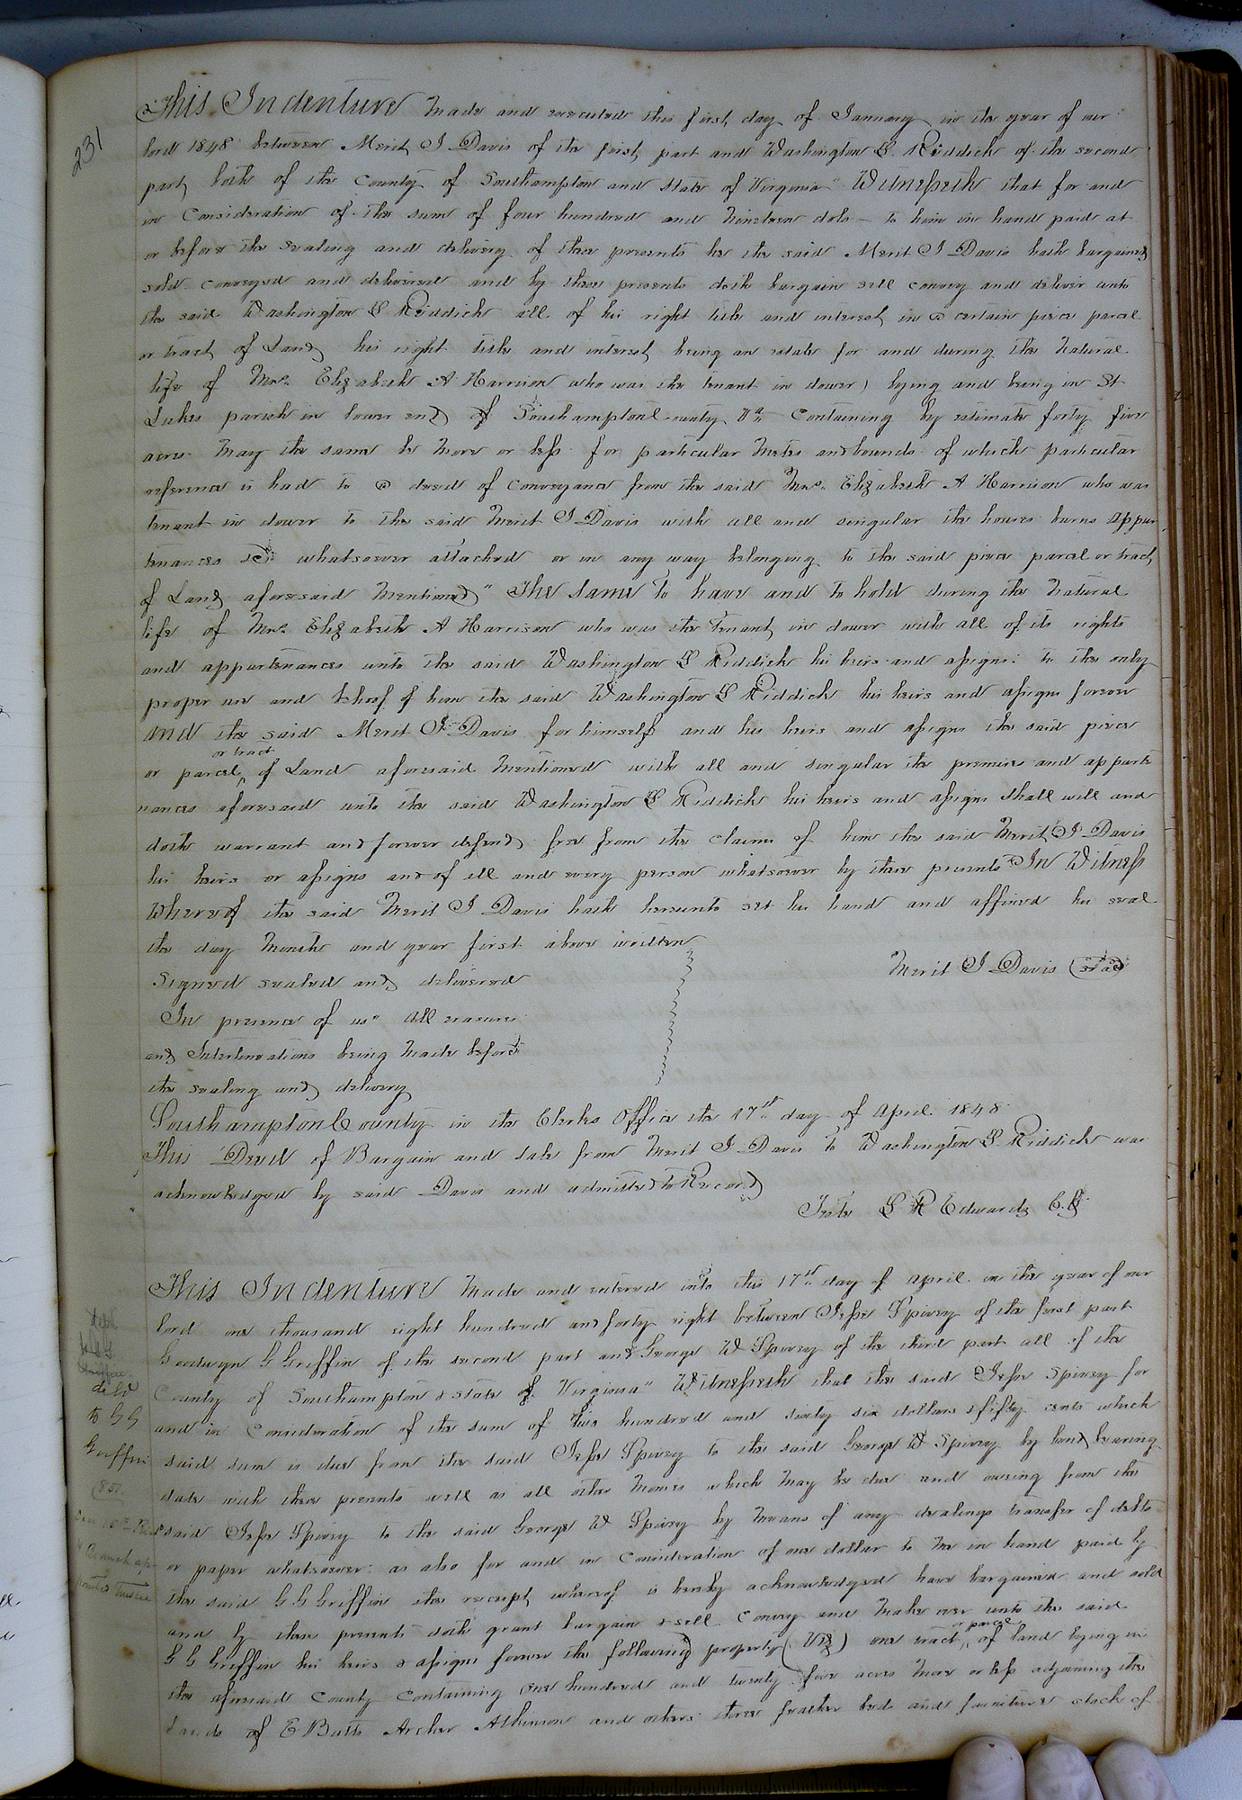 231
This Indenture Made and executed this first day of January in the year of our
lord 1848 between Merit I Davis of the first part and Washington L Riddick of the second
part both of the County of Southampton and State of Virginia " Witnesseth that for and
in Consideration of the sum of four hundred and Nineteen dols — to him in hand paid at
or before the sealing and delivery of these presents he the said Merit I Davis hath bargained
sold conveyed and delivered and by these presents doth bargain sell convey and deliver unto
the said Washington L Riddick all of his right title and interest in a certain piece parcel
or tract of Land his right title and interest being an estate for and during the Natural
life of Mrs. Elizabeth A Harrison who was the tenant in dower) lying and being in St
Lukes parish in lower end of Southampton County Va Containing by estimate forty five
acres May the same be More or less for particular Metes and bounds of which particular
reference is had to a deed of conveyance from the said Mrs. Elizabeth A Harrison who was
tenant in dower to the said Merit I Davis with all and singular the houses barns appur
tenances &c whatsoever attached or in any way belonging to the said piece parcel or tract
of Land aforesaid Mentioned " The same To have and to hold during the Natural
life of Mrs. Elizabeth A Harrison who was the Tenant in dower with all of its rights
and appurtenances unto the said Washington L Riddick his heirs and assigns to the only
proper use and behoof of him the said Washington L Riddick his heirs and assigns forever
and the said Merit I Davis for himself and his heirs and assigns the said piece
or tract
or parcel of Land aforesaid Mentioned with all and singular the premises and apparte
nances aforesaid unto the said Washington L Riddick his heirs and assigns shall will and
doth warrant and forever defend free from the claims of him the said Merit I Davis
his heirs or assigns and of all and every person whatsoever by these presents In Witness
Whereof the said Merit I Davis hath hereunto set his hand and affixed his seal
the day Month and year first above written
Merit I Davis (seal)
Signed sealed and delivered
In presence of us " All erasures
and Interlineations being Made before
the sealing and delivery
Southampton County in the Clerks Office the 17th day of April 1848
This Deed of Bargain and sale from Merit I Davis to Washington L Riddick was
acknowledged by said Davis and admitted to Record
Teste L R Edwards C.C.
This Indenture Made and entered into this 17th day of April in the year of our
lord one thousand eight hundred and forty eight between Jesse Spivey of the first part
Goodwyn G Griffin of the second part and George W Spivey of the third part all of the
County of Southampton & state of Virginia " Witnesseth that the said Jesse Spivey for
and in Consideration of the sum of hundred and sixty six dollars & fifty cents which
said sum is due from the said Jesse Spivey to the said George W Spivey by bond bearing
date with these presents well as all other Monies which May be due and owing from the
said Jesse Spivey to the said George W Spivey by Means of any dealings transfer of debts
or paper whatsoever: as also for and in Consideration of one dollar to Me in hand paid by
the said G G Griffin the receipt whereof is hereby acknowledged have bargained and sold
and by these presents doth grant bargain & sell Convey and Make over unto the said
or parcel
G G Griffin his heirs & assigns forever the following property (Viz) one tract of land lying in
the aforesaid County Containing One hundred and twenty five acres More or less adjoining the
Lands of E Butts Archer Atkinson and others three feather beds and furniture stock of
deld
to G G
Griffin